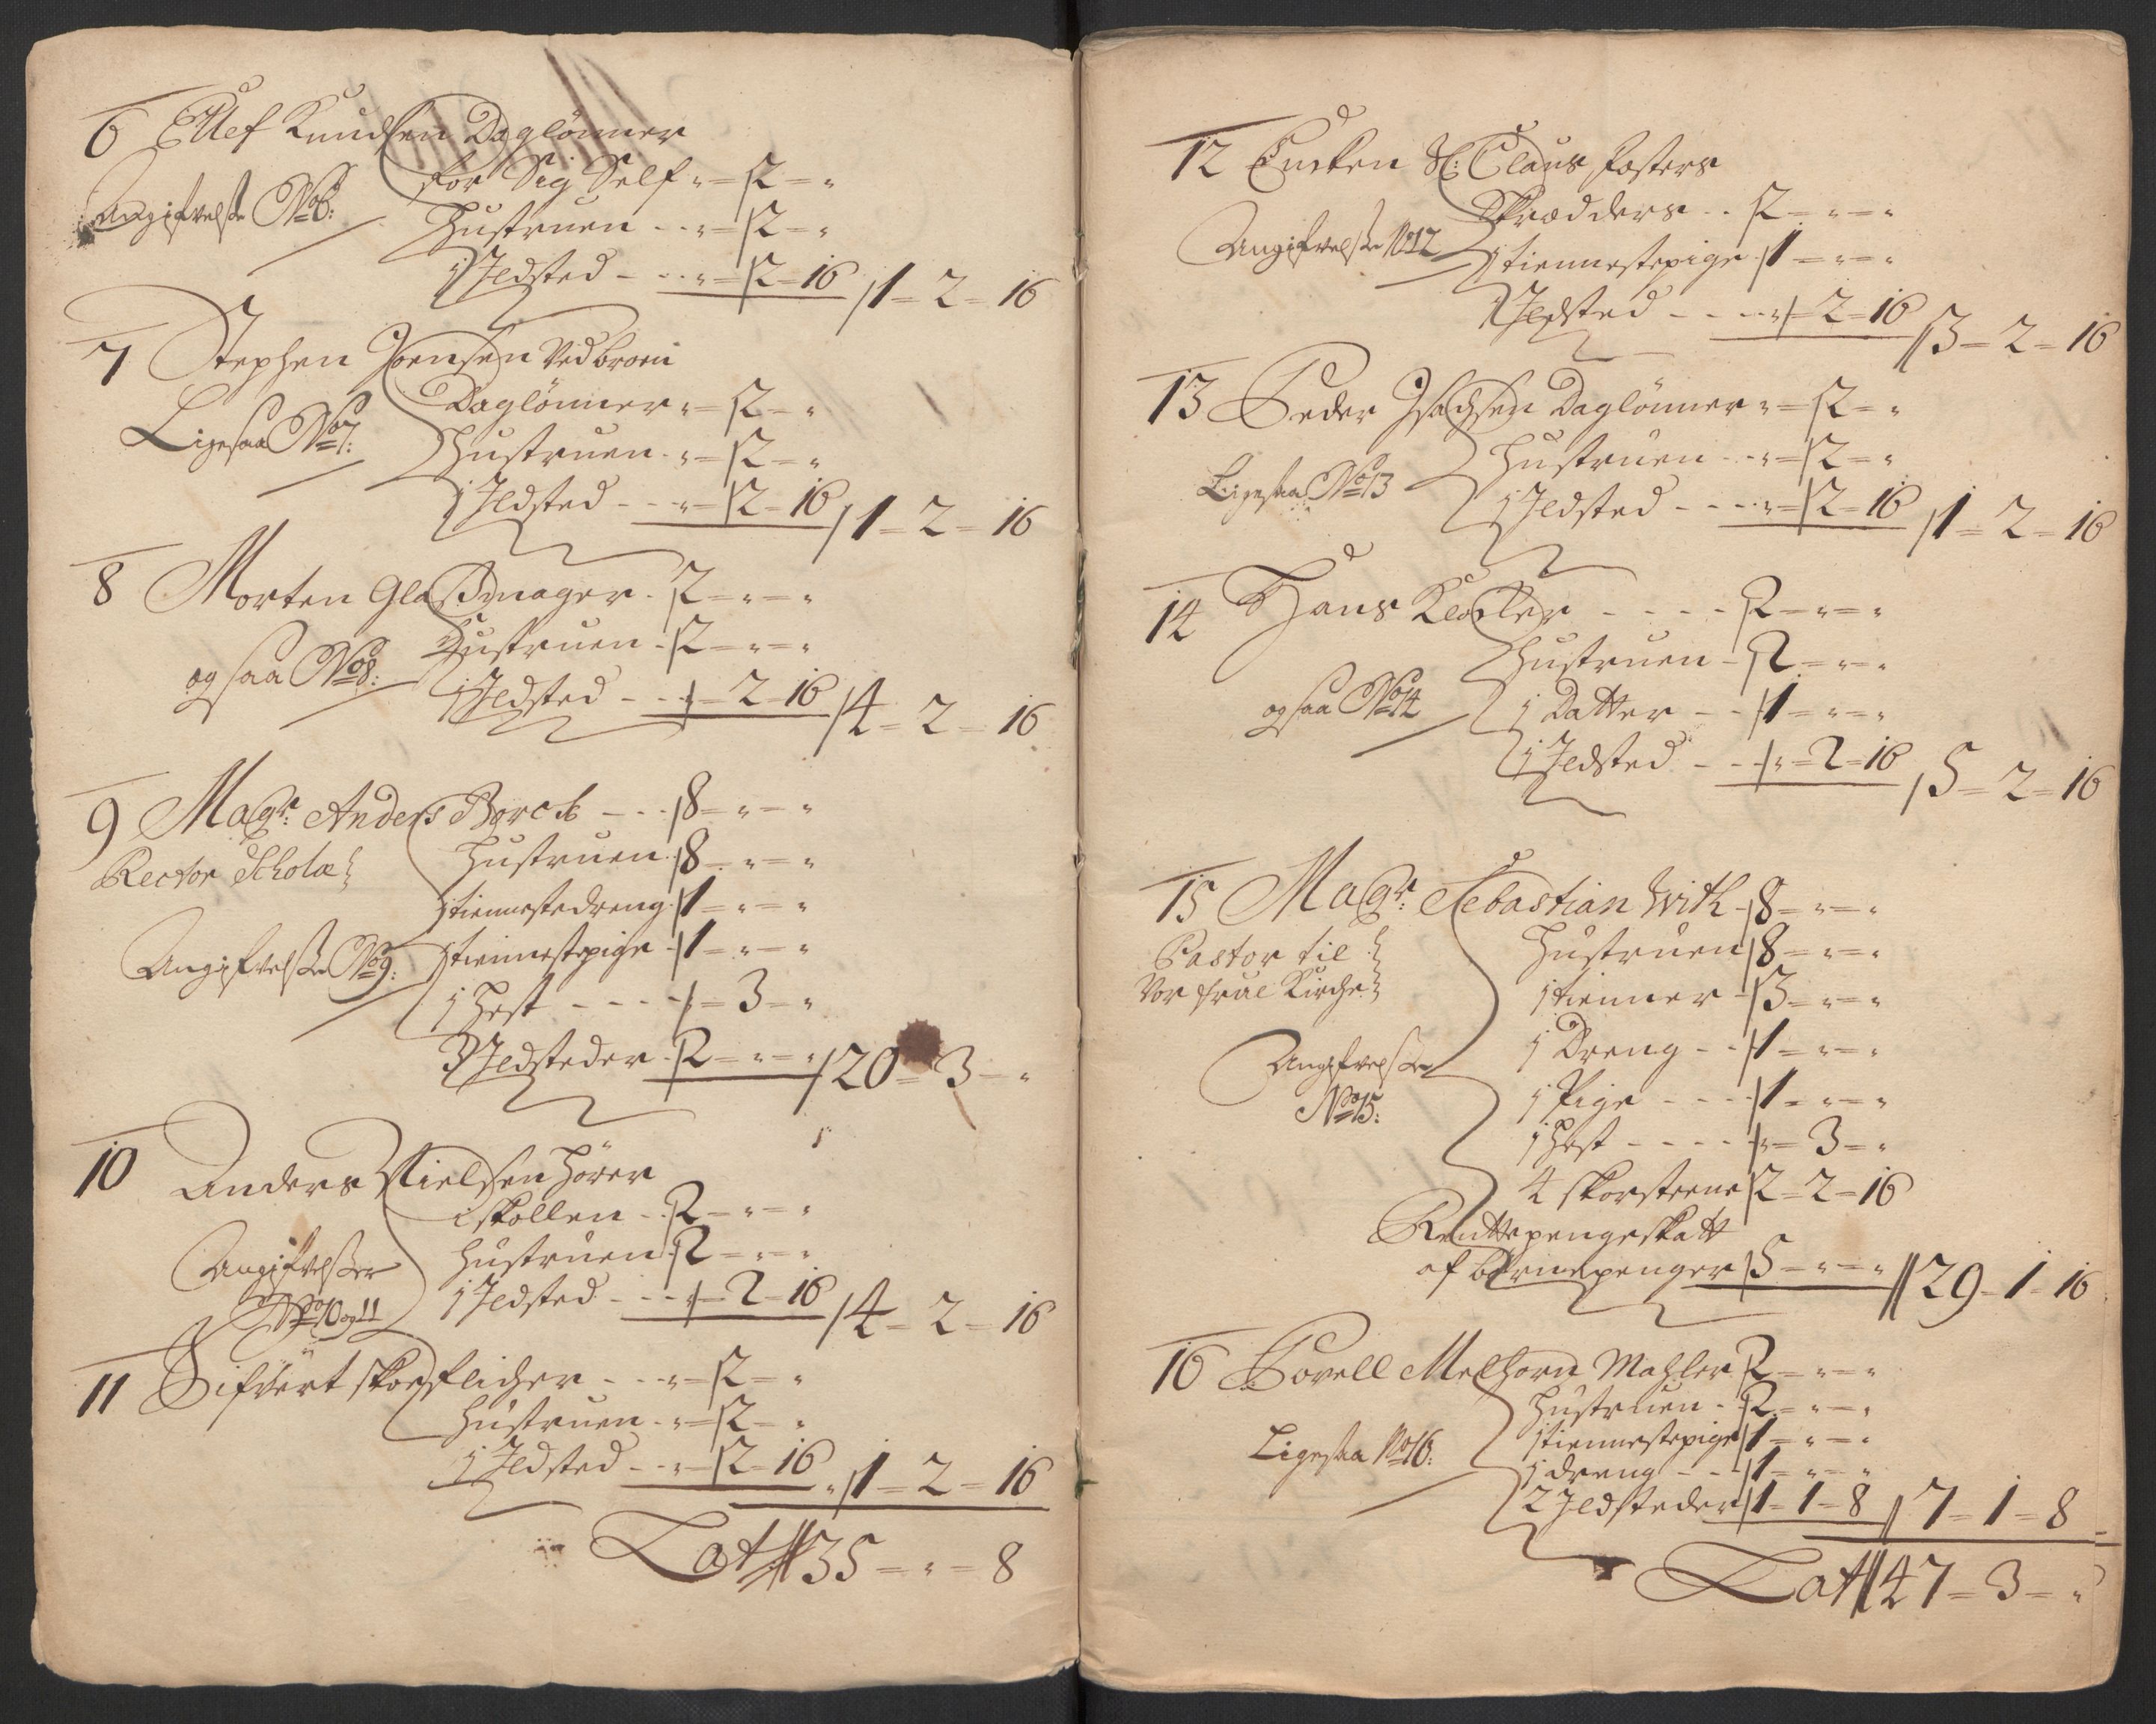 6 Ellef Knudsen Daglönner
for Sig Self „ = 2 = „
Angifvelße No 6:
Hustruen - - „ = 2 = „
1 Ildsted - - „ = 2 = 16 / 1 = 2 = 16
7 Stephen Joensen Ved broen
Daglönner „ = 2 = „
Ligesaa No 7:
Hustruen - „ = 2 = „
1 Ildsted - - „ = 2 = 16 / 1 = 2 = 16
8 Morten Glaßmager - 2 = „ = „
Hustruen - 2 = „ = „
og saa No 8:
1 Ildsted - - „ = 2 = 16 / 4 = 2 = 16
9 Magr: Anders Borch - - 8 = „ = „
Rector Scholæ
Hustruen - 8 = „ = „
1 tiennestedreng - 1 = „ = „
Angifvelße No 9:
1 tiennestepige - 1 = „ = „
1 Hest - - - „ = 3 = „
3 Ildsteder - 2 = „ = „ / 20 = 3 = „
10 Anders Nielsen Hörer
i skollen - - 2 = „ = „
Angifvelßer
Hustruen - 2 = „ = „
No 10 og 11
1 Ildsted - - - „ = 2 = 16 / 4 = 2 = 16
11 Sifvert skoeflicher - - „ = 2 = „
Hustruen - „ = 2 = „
1 Ildsted - - „ = 2 = 16 / 1 = 2 = 16
Lat 35 = „ = 8
12 Encken Sl: Claus fosters
Skrædders - - 2 = „ = „
Angifvelße No 12
1 tiennestepige - 1 = „ = „
1 Ildsted - - - „ = 2 = 16 / 3 = 2 = 16
13 Peder Isachsen Daglönner „ = 2 = „
Hustruen - - „ = 2 = „
Ligesaa No 13
1 Ildsted - - - „ = 2 = 16 / 1 = 2 = 16
14 Hans - - - - 2 = „ = „
Hustruen - 2 = „ = „
og saa No 14
1 Datter - - 1 = „ = „
1 Ildsted - - „ = 2 = 16 / 5 = 2 = 16
15 Magr: Sebastian With - 8 = „ = „
Pastor til
Hustruen 8 = „ = „
Vor frue Kirche
1 tienner - 3 = „ = „
1 Dreng - - 1 = „ = „
Angifvelße
No 15:
1 Pige - - - 1 = „ = „
1 Hest - - - - „ = 3 = „
4 skorsteene 2 = 2 = 16
Renttepengeskatt
af börnepenger 5 = „ = „ // 29 = 1 = 16
16 Povell Melhorn Mahler 2 = „ = „
Hustruen - 2 = „ = „
Ligesaa No 16:
1 tiennestepige 1 = „ = „
1 dreng - - 1 = „ = „
2 Ildsteder 1 = 1 = 8 / 7 = 1 = 8
Lat 47 = 3 = „